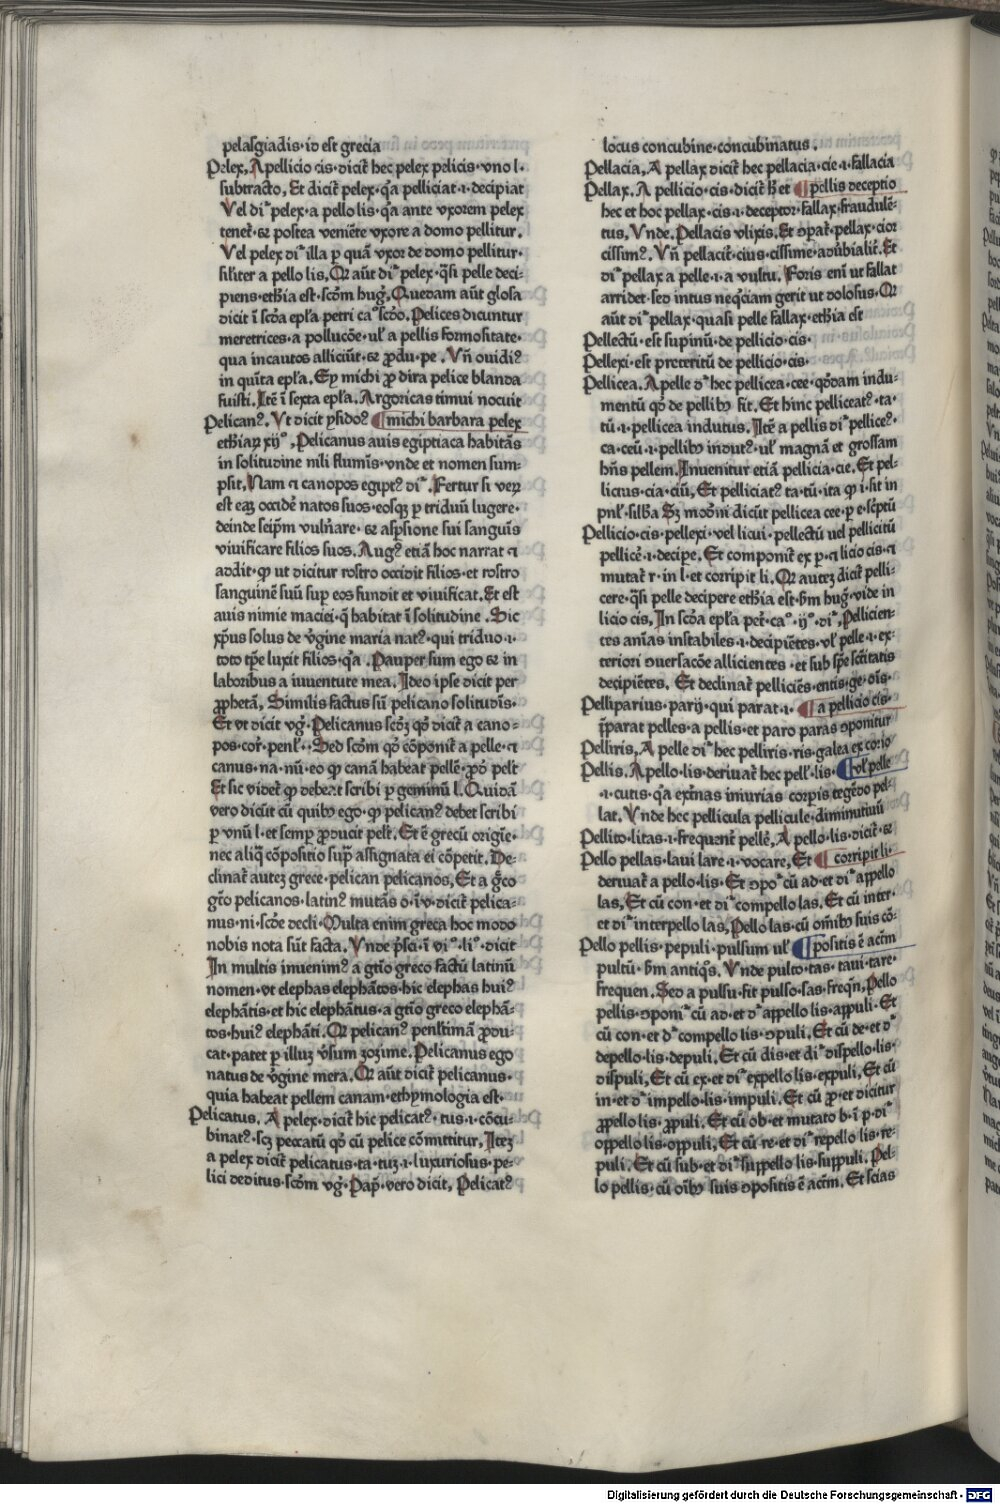 pelasgiadis·id est grecia
Pelex, A pellicio cis·dicit̃ hec pelex pelicis·vno l·
subtracto, Et dicit̃ pelex·q̃a pelliciat·ı·decipiat
Vel dr̃ pelex·a pello lis·q̃a ante vxorem pelex
tenet᷑·ꝛ postea veniẽte vxore a domo pellitur.
Vel pelex dr̃ illa ꝑ quã vxor de domo pellitur·
sil̃iter a pello lis, Ꝟl aũt dr̃ pelex·q̃si pelle deci-
piens·ethĩa est·scďm hug᷑. Quedam aũt glosa
dicit ĩ scďa epl̃a petri caº scďo. Pelices dicuntur
meretrices·a pollucõe·ul̃ a pellis formositate·
qua incautos alliciũt·ꝛ ꝓdu·pe·Vñ ouidiꝰ
in quĩta epl̃a. Ey michi ꝓ dira pelice blanda
fuisti. Itẽ ĩ sexta epl̃a. Argoricas timui nocuit
Pelicanꝰ. Vt dicit ysidoꝰ ¶ michi barbara pelex
ethiaꝝ xijº, Pelicanus auis egiptiaca habitãs
in solitudine nili flumĩs·vnde et nomen sum-
psit, Nam ⁊ canopos egiptꝰ dr̃. Fertur si veꝝ
est eaꝫ occidẽ natos suos·eosqꝫ ꝑ triduũ lugere·
deinde seip̃m vulñare·ꝛ asp̃sione sui sanguĩs
viuificare filios suos. Augꝰ etiã hoc narrat ⁊
addit·qꝫ ut dicitur rostro occidit filios·et rostro
sanguinẽ suũ suꝑ eos fundit et viuificat. Et est
auis nimie maciei·q̃ habitat ĩ solitudine. Sic
xp̃us solus de v̾gine maria natꝰ·qui triduo·ı·
toto tp̃e luxit filios·q̃a. Pauper sum ego ꝛ in
laboribus a iuuentute mea. Ideo ipse dicit per
ꝓphetã, Similis factus sũ pelicano solitudĩs·
Et vt dicit vg᷑·Pelicanus scďꝫ qď dicit̃ a cano-
pos·cor᷑·penl̃·, Sed scďm qď cõponit̃ a pelle·⁊
canus·na·nũ·eo qꝫ canã habeat pellẽ·ꝓď pelt̃
Et sic videt̃ qꝫ debeat scribi ꝑ geminũ l. Quidã
vero dicũt cũ quibꝫ ego·qꝫ pelicanꝰ debet scribi
ꝑ vnũ l·et semꝑ ꝓducit pelt̃. Et ẽ grecũ origĩe·
nec aliq̃ cõpositio sup̃ assignata ei cõpetit. De-
clinat̃ autez grece·pelican pelicanos, Et a g̃co
gt̃o pelicanos·latinꝰ mutãs o·ĩ·v·dicit pelica-
nus·ni·scďe decli·Multa enim greca hoc modo
nobis nota sũt facta. Vnde p̃sci·ĩ viº·liº·dicit
In multis inuenimꝰ a gt̃io greco factũ latinũ
nomen·vt elephas elephãtos·hic elephas huiꝰ
elephãtis·et hic elephãtus·a gt̃io greco elephã-
tos·huiꝰ elephãti. Ꝙ pelicanꝰ penl̃timã ꝓdu-
cat·patet ꝑ illuꝫ v̾sum zozime. Pelicanus ego
natus de v̾gine mera. Ꝟl aũt dicit̃ pelicanus·
quia habeat pellem canam·ethymologia est·
Pelicatus. A pelex·dicit̃ hic pelicatꝰ·tus·ı·cõcu-
binatꝰ·scꝫ peccatũ qď cũ pelice cõmittitur, Iteꝫ
a pelex dicit̃ pelicatus·ta·tuꝫ·ı·luxuriosus·pe-
lici deditus·scďm vg᷑·Pap̃·vero dicit, Pelicatꝰ
locus concubine·concubinatus.
Pellacia, A pellax dicit̃ hec pellacia·cie·ı·fallacia
Pellax. A pellicio·cis·dicit̃ h̃ et ¶ pellis deceptio
hec et hoc pellax·cis·ı·deceptor·fallax·fraudulẽ-
tus, Vnde. Pellacis vlixis. Et ꝯpat̃·pellax·cior
cissimꝰ. Vñ pellacit̃·cius·cissime·adũbialit̃. Et
dr̃ pellax a pelle·ı·a vultu. Foris eni᷑ ut fallat
arridet·sed intus neq̃ciam gerit ut dolosus·Ꝟl
aũt dr̃ pellax·quasi pelle fallax·ethĩa est
Pellectũ·est supinũ·de pellicio·cis·
Pellexi·est preteritũ de pellicio·cis·
Pellicea. A pelle dr̃ hec pellicea·cee·qd̃dam indu-
mentũ qď de pellibꝫ fit. Et hinc pelliceatꝰ·ta·
tũ·ı·pellicea indutus. Itẽ a pellis dr̃ pelliceꝰ·
ca·ceũ·ı·pellibꝫ indutꝰ·ul̃ magnã et grossam
hñs pellem. Inuenitur etiã pellicia·cie. Et pel-
licius·cia·ciũ, Et pelliciatꝰ ta·tũ·ita qꝫ i·sit in
pnl̃·sil̃ba Sꝫ moďni dicũt pellicea cee·ꝑ e·sc̃ptũ
Pellicio·cis·pellexi·vel licui·pellectũ uel pellicitũ
pellicẽ·ı·decipe. Et componit̃ ex ꝑ·⁊ licio cis·⁊
mutat̃ r·in l·et corripit li. Ꝟl autez dicit̃ pelli-
cere·q̃si pelle decipere ethĩa est·ẜm hug᷑·vide in
licio cis. In scďa epl̃a pet̃·caº·ijº·dr̃, Pellicien-
tes anĩas instabiles·ı·decipiẽtes·vl̃ pelle·ı·ex-
teriori ꝯuersacõe allicientes·et sub sp̃e sc̃titatis
decipiẽtes. Et declinat̃ pelliciẽs·entis·ge·oĩs·
Pelliparius·parij·qui parat·ı· ¶ a pellicio cis·
p̃parat pelles·a pellis·et paro paras ꝯponitur
Pelliris, A pelle dr̃ hec pelliris·ris·galea ex corio
Pellis. A pello·lis·deriuat̃ hec pell̃·lis· ¶ vl̃ pelle
·ı·cutis·q̃a ext̃nas iniurias corpis tegẽdo pel-
lat. Vnde hec pellicula pellicule·diminutiuũ
Pellito·litas·ı·frequẽnt̃ pellẽ, A pello·lis·dicit̃·ꝛ
Pello pellas·laui lare·ı·vocare, Et ¶ corripit li·
deriuat̃ a pello·lis·Et ꝯpoº cũ ad·et dr̃ appello
las, Et cũ con·et dr̃ compello las. Et cũ inter·
et dr̃ interpello las, Pello las·cũ om̃ibꝫ suis cõ-
Pello pellis·pepuli·pulsum ul̃ ¶ positis ẽ actĩm
pultũ·ẜm antiq̃s. Vnde pulto·tas·taui·tare·
frequen. Sed a pulsu·fit pulso·sas·freq̃n, Pello
pellis·ꝯponr̃ cũ ad·et dr̃ appello·lis·appuli·Et
cũ con·et dr̃ compello lis·ꝯpuli. Et cũ de·et dr̃
depello·lis·depuli. Et cũ dis·et dr̃ dispello·lis·
dispuli, Et cũ ex·et dr̃ expello lis·expuli, Et cũ
in·et dr̃ impello·lis·impuli. Et cũ ꝓ·et dicitur
ꝓpello lis·ꝓpuli. Et cũ ob·et mutato b·ĩ p·dr̃
oppello lis·oppuli, Et cũ re·et dr̃ repello lis·re-
puli. Et cũ sub·et dr̃ suppello lis·suppuli. Pel-
lo pellis·cũ oĩbꝫ suis ꝯpositis ẽ actĩm. Et scias
Digitalisierung gefördert durch die Deutsche Forschungsgemeinschaft · DFG